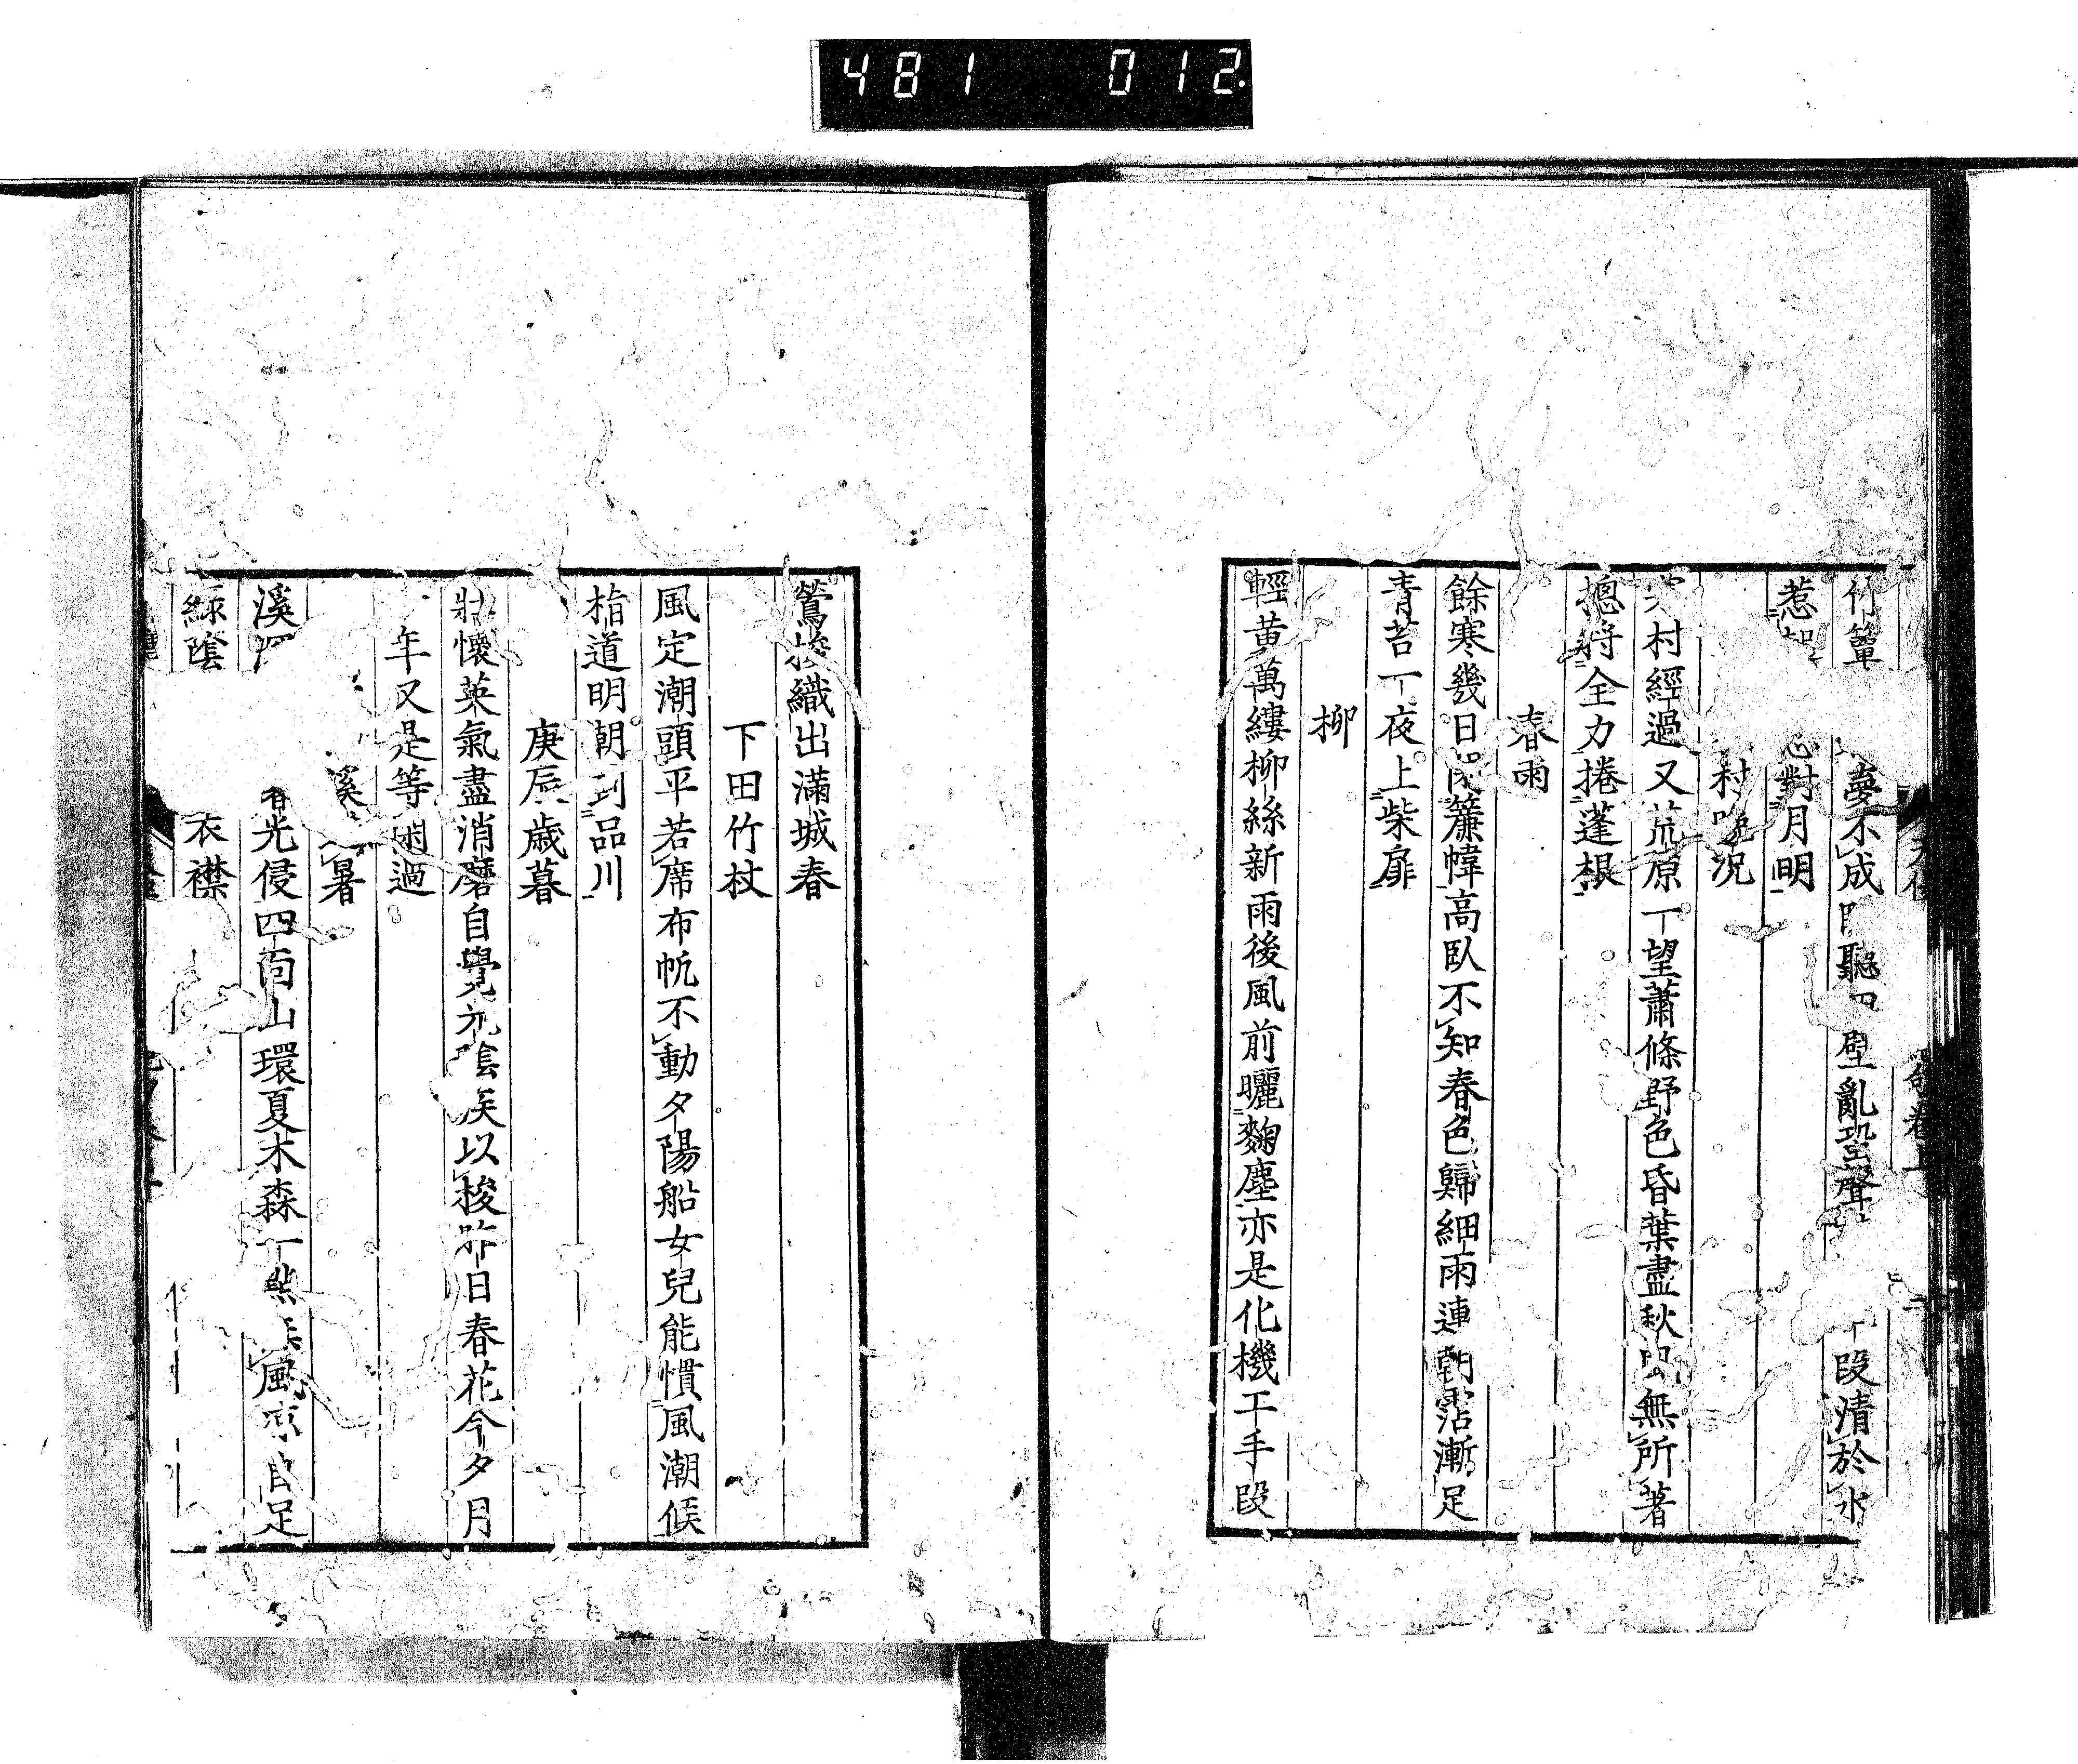 481 012
竹簟 夢不成 聽 壁亂蛩聲 段清於水
惹 對月明
村晚況
村經過又荒原一望蕭條野色昏葉盡秋 無所著
摠將全力捲蓬根
春雨
餘寒幾日 簾幃高臥不知春色歸細雨連朝霑漸足
青苔一夜上柴扉
柳
輕黄萬縷柳絲新雨後風前曬麴塵亦是化機工手段
鶯梭織出滿城春
下田竹枝
風定潮頭平若席布帆不動夕陽船女兒能慣風潮候
指道明朝到品川
庚辰歳暮
壯懷英氣盡消磨自覺光陰疾以梭昨日春花今夕月
年又是等閑過
溪 暑
溪 光侵四面山環夏木森一點 風 自足
綠陰 衣襟